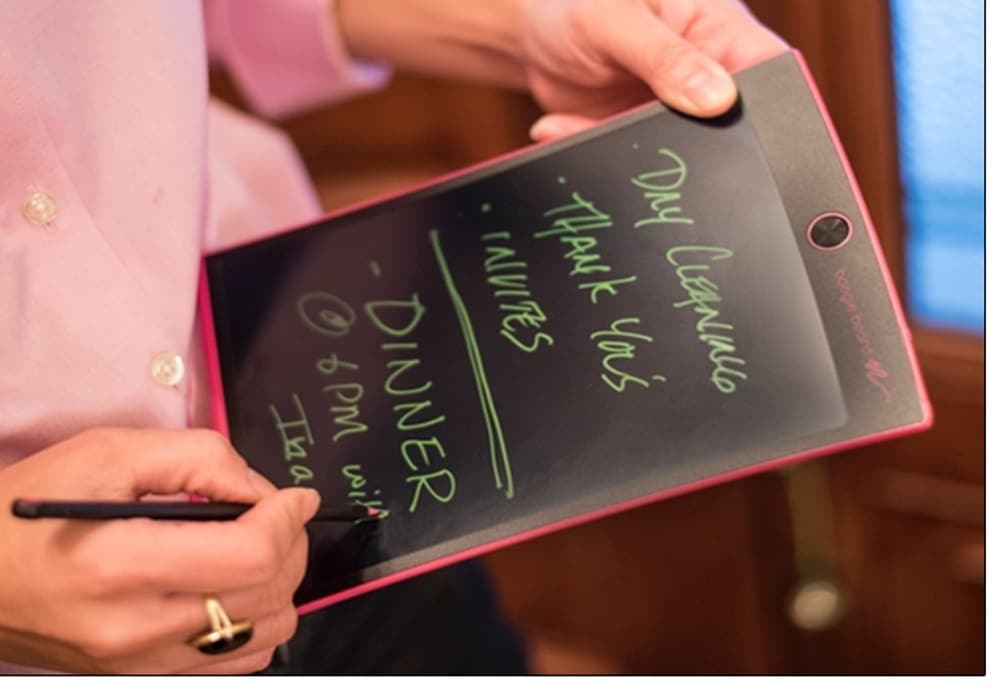 · DAY CLEANING
· THANK YOU'S
· INVITES
- DINNER
@ 6PM with
boogie board